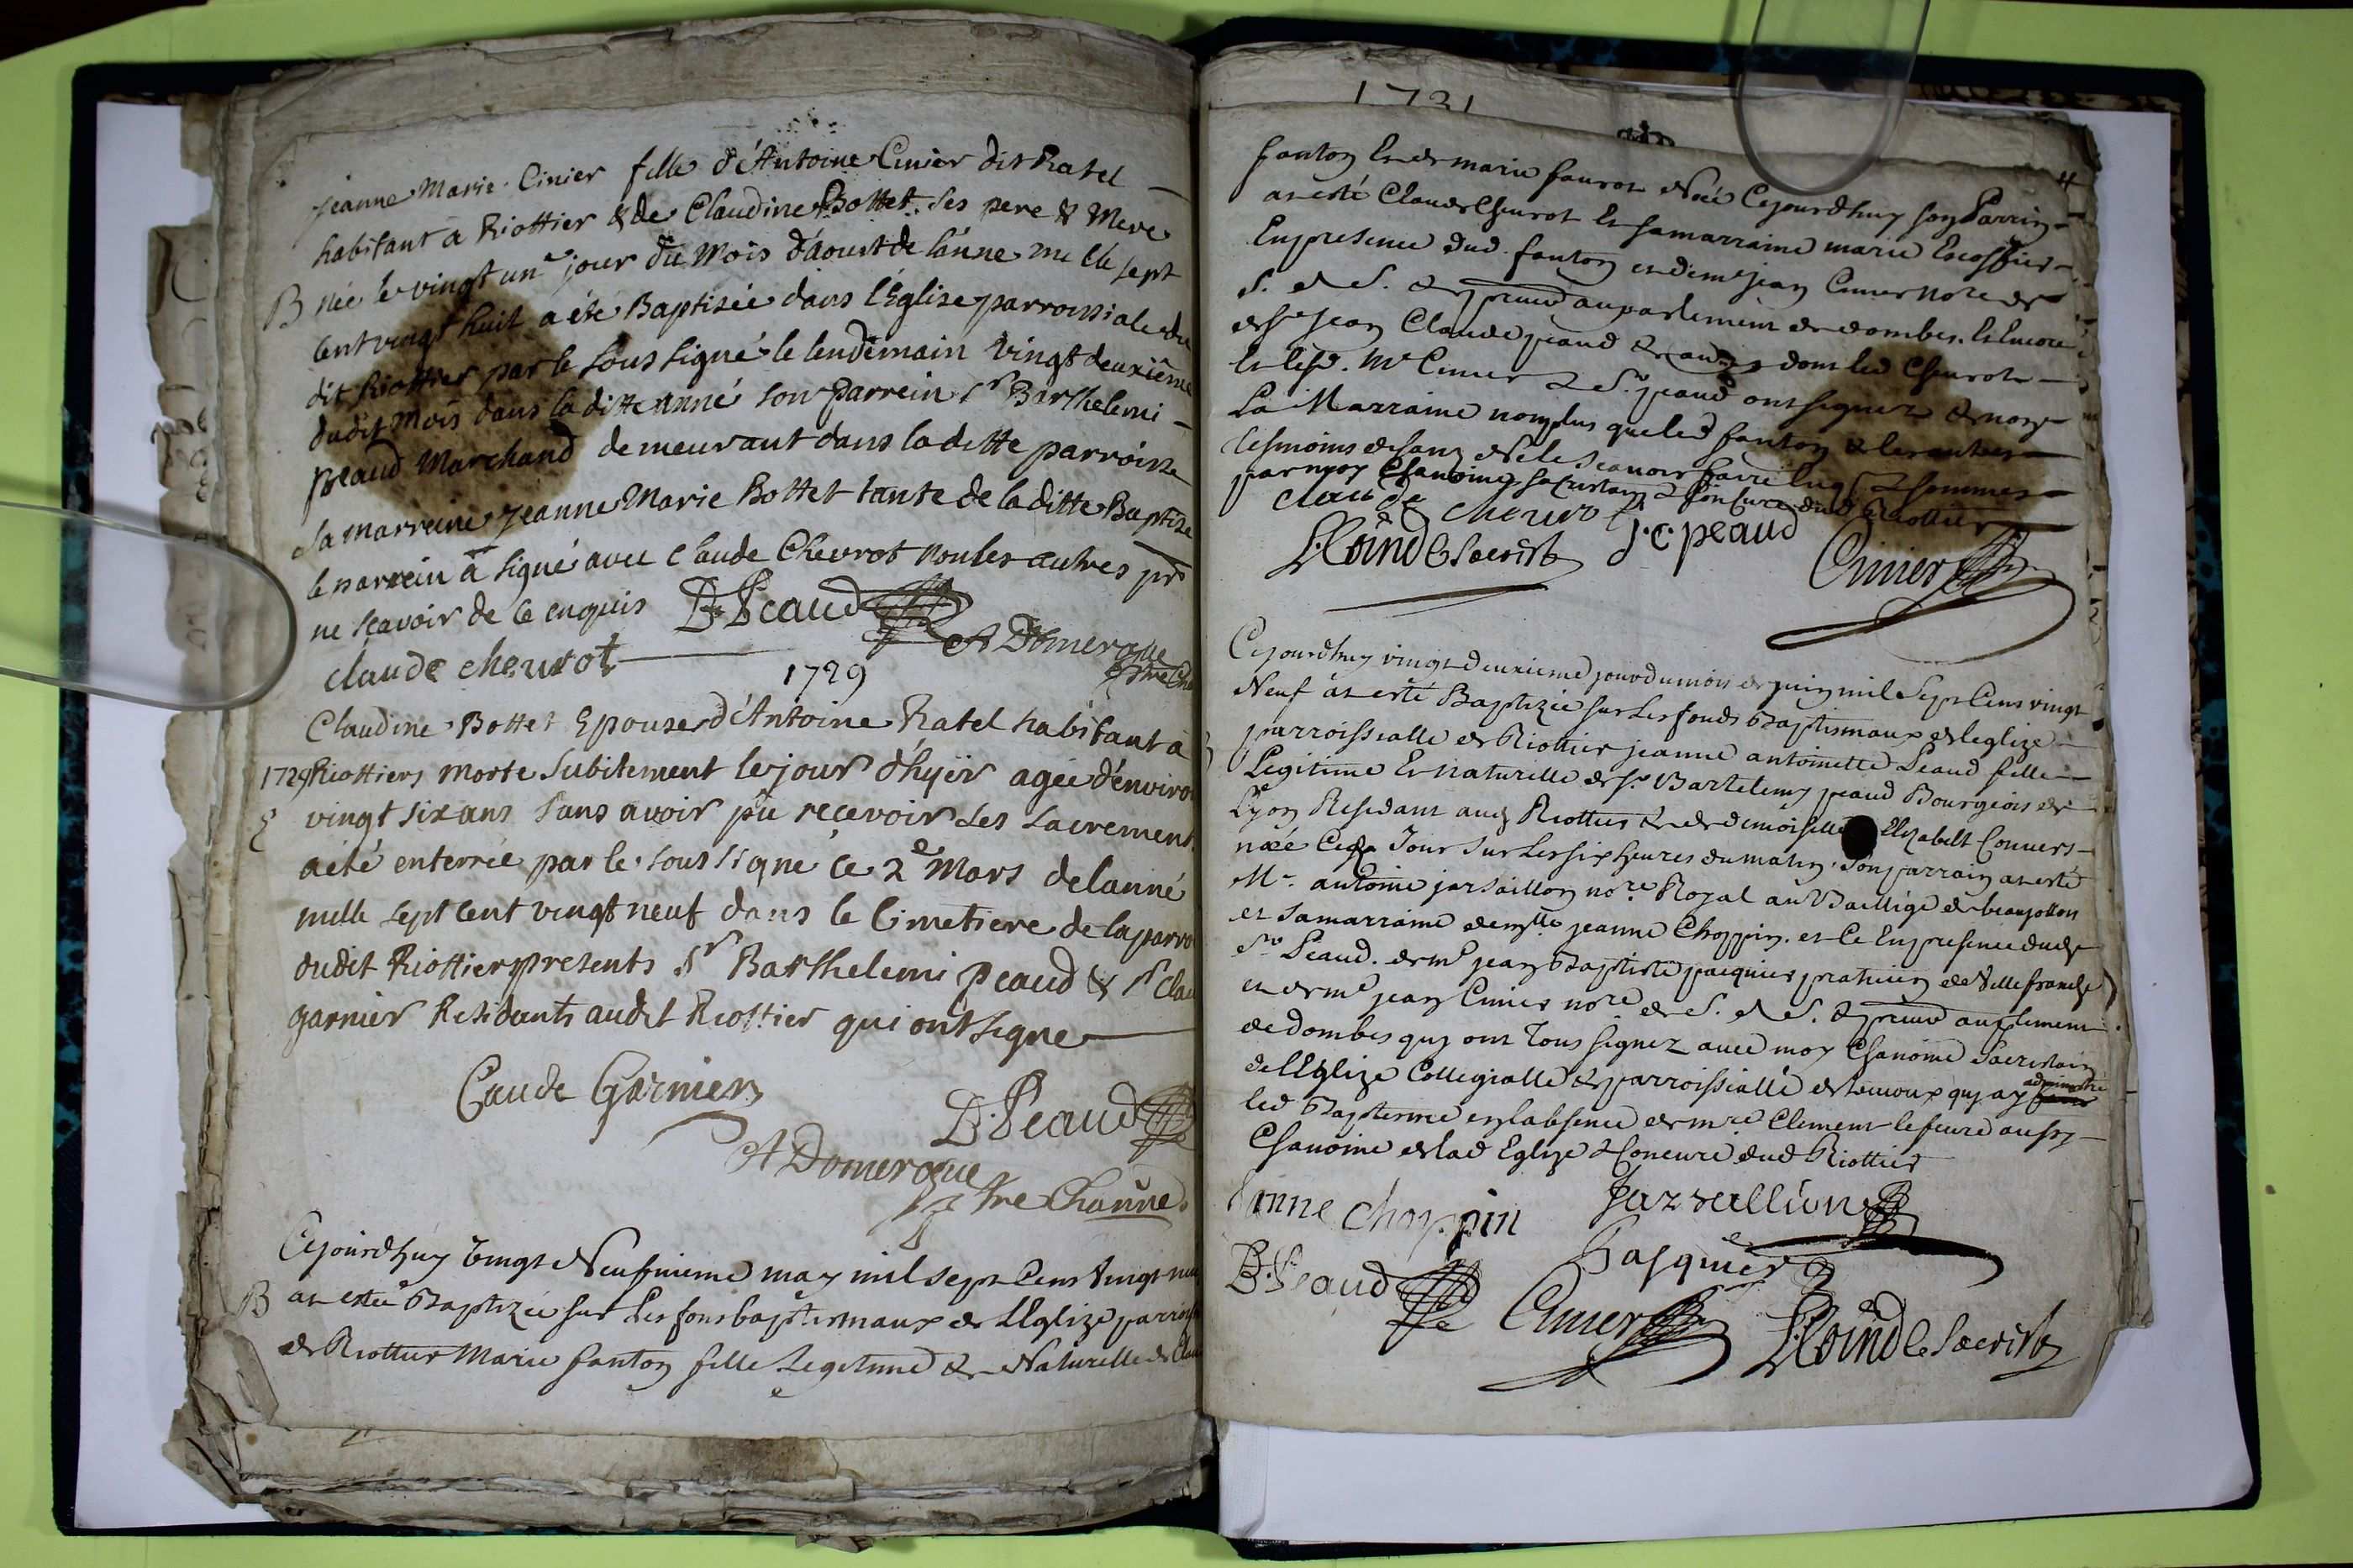 jeanne Marie Cinier fille d'Antoine Cinier dit Ratel
habitant à Riottier & de Claudine Bottet ses pere & Mere
B née le vingt un jour du Mois d'aoust de l'anne mille sept
cent vingt huit a été Baptisée dans l'Eglise parroissiale du
dit Riottier par le sous signé le lendemain vingt deuxième
dudit mois dans la ditte anné son parrein sr Barthelemi
peaud Marchand demeurant dans la ditte parroisse
sa marreine jeanne Marie Bottet tante de la ditte Baptisé
le parrein a signé avec Claude Chevrot non les autres pr
ne scavoir de ce enquis B. Peaud
A Domergue
claude chevrot
1729
Claudine Bottet Epouse d'Antoine Ratel habitant à
1729 Riottiers morte subitement le jour d'hyer agée d'enviro
vingt six ans sans avoir pu reçevoir les sacrement
a été enterrée par le sous signé ce 2e Mars de lanné
mille sept cent vingt neuf dans le Cimetiere de la parro
dudit Riottier presents sr Barthelemi peaud & sr Clau
garnier Residants audit Riottier qui ont signe
Caude Garnier
B. Peaud
A Domergue
ptre Channe
Cejourd'huy vingt Neufvieme may mil sept cens vingt neu
B at estée Baptizée sur les fons baptismaux de l'Eglize parrois
de Riottier Marie fanton fille Legitime & Naturelle de Clau
1721
4
fanton et de marie faurot Née Cejourdhuy son Parrin
at esté Claude Cheurot et sa marraine marie
En presence dud. fanton et de me jean Cinier nore
S. au parlement de dombes. et Encore
de sr jean Claude peaud dont led Cheurot
Me Cinier & Sr. peaud ont signez & non
La Marraine non plus que led fanton & les autres
par moy Chanoine sacristain
claude cheurot J. c. peaud
le sacrist
Cinier
Cejourdhuy vingt deuxieme jour du mois de juin mil sept Cens vingt
Neuf at esté Baptizée sur Les fonds Baptismaux de leglize
parroissialle de Riottier jeanne antoinette Peaud fille
Legitime Et naturelle de sr. Bartelemy peaud Bourgeois de
Lyon Residant aud Riottier & de demoiselle Elizabeth Convers
née Ced Jour sur Les six heures du matin. son parrain at esté
Me. antoine jarsaillon nore. Royal au Bailliage de beaujollois
et sa marraine demlle jeanne Choppin. et Ce En presence dud
Sr Peaud. de me jean Baptiste pasquier praticien de Villefranche
et de me jean Cinier nore de S. & au parlement
de dombes quy ont Tous signez avec moy Chanoine Sacristain
de lEglize Collegialle & parroissialle de quy ay administré
led Baptesme en labsence de mre Clement lefeure aussy
Chanoine de lad Eglize & Concuré dud Riottier
anne choppin
Jarsaillion
Pasquier
B. Peaud
Cinier
le sacrist